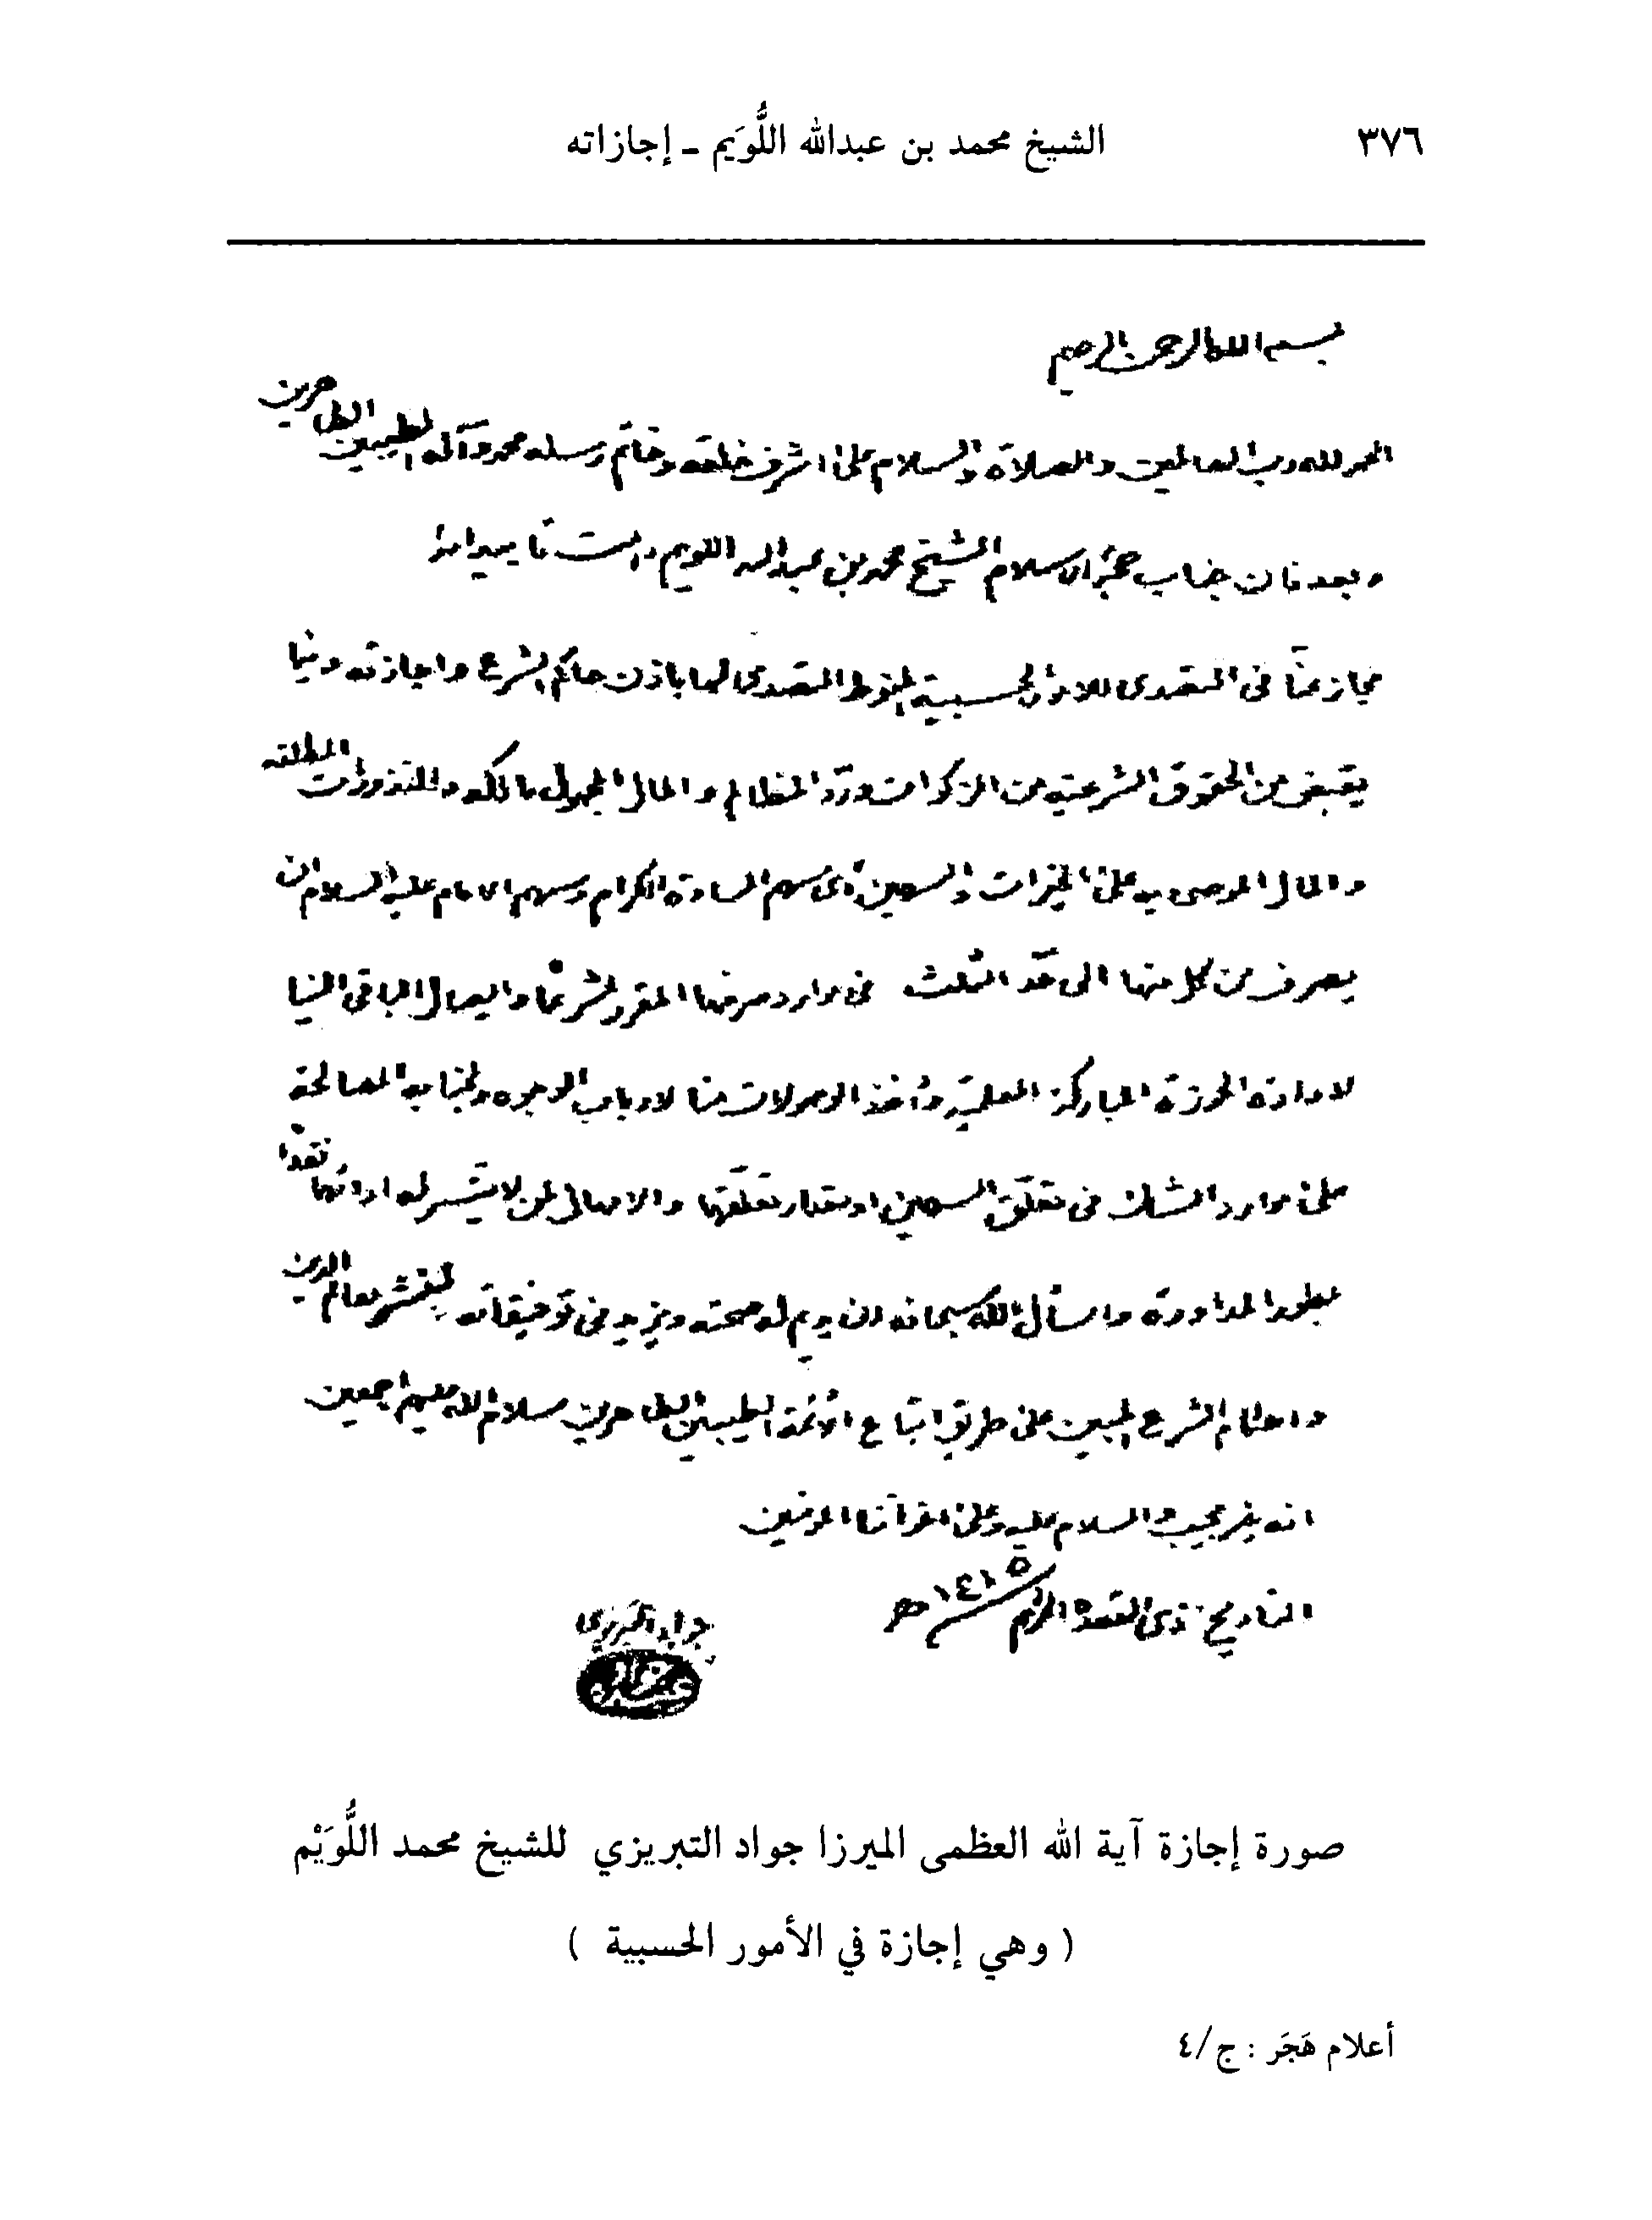 ٣٧٦
الشيخ محمد بن عبدالله اللُّوَيم ـ إجازاته
بسم الله الرحمن الرحيم
الحمد لله رب العالمين والصلاة والسلام على اشرف خلقه وخاتم رسله محمد وآله الطيبين الطاهرين
وبعد فان جناب حجة الاسلام الشيخ محمد بن عبد الله اللويم دامت تأييداته
مجاز عنّا في التصدى للامور الحسبية المنوط التصدى لها باذن حاكم الشرع واجازته وفيما
يقبض من الحقوق الشرعيّة من الزكوات وردّ المظالم والمال المجهول مالكه والنذورات المطلقه
والمال الموصى به على الخيرات والسهمين أى سهم السادة الكرام وسهم الامام عليه السلام ان
يصرف من كل منها الى حدّ الثلث في موارد صرفها المقرر شرعًا وايصال الباقى الينا
لادارة الحوزة المباركة العلميّة وأخذ الوصولات منا لارباب الوجوه ولجنابه المصالحة
على موارد الشك في تعلّق السهمين او مقدار تعلّقها والامهال لمن لا يتيسّر له ادائها نقدًا
بطور المداورة واسأل الله سبحانه ان يديم له صحته ويزيد في توفيقاته لنشر معالم الدين
واحكام الشرع المبين على طريق اتباع الأئمة الطيبين الطاهرين سلام الله عليهم اجمعين
انه خير مجيب والسلام عليه وعلى اخواننا المومنين
التاريخ ذى القعدة الحرام ١٤١٥ هـ
جواد التبريزى
صورة إجازة آية الله العظمى الميرزا جواد التبريزي للشيخ محمد اللُّوَيْم
( وهي إجازة في الأمور الحسبية )
أعلام هَجَر : ج/٤